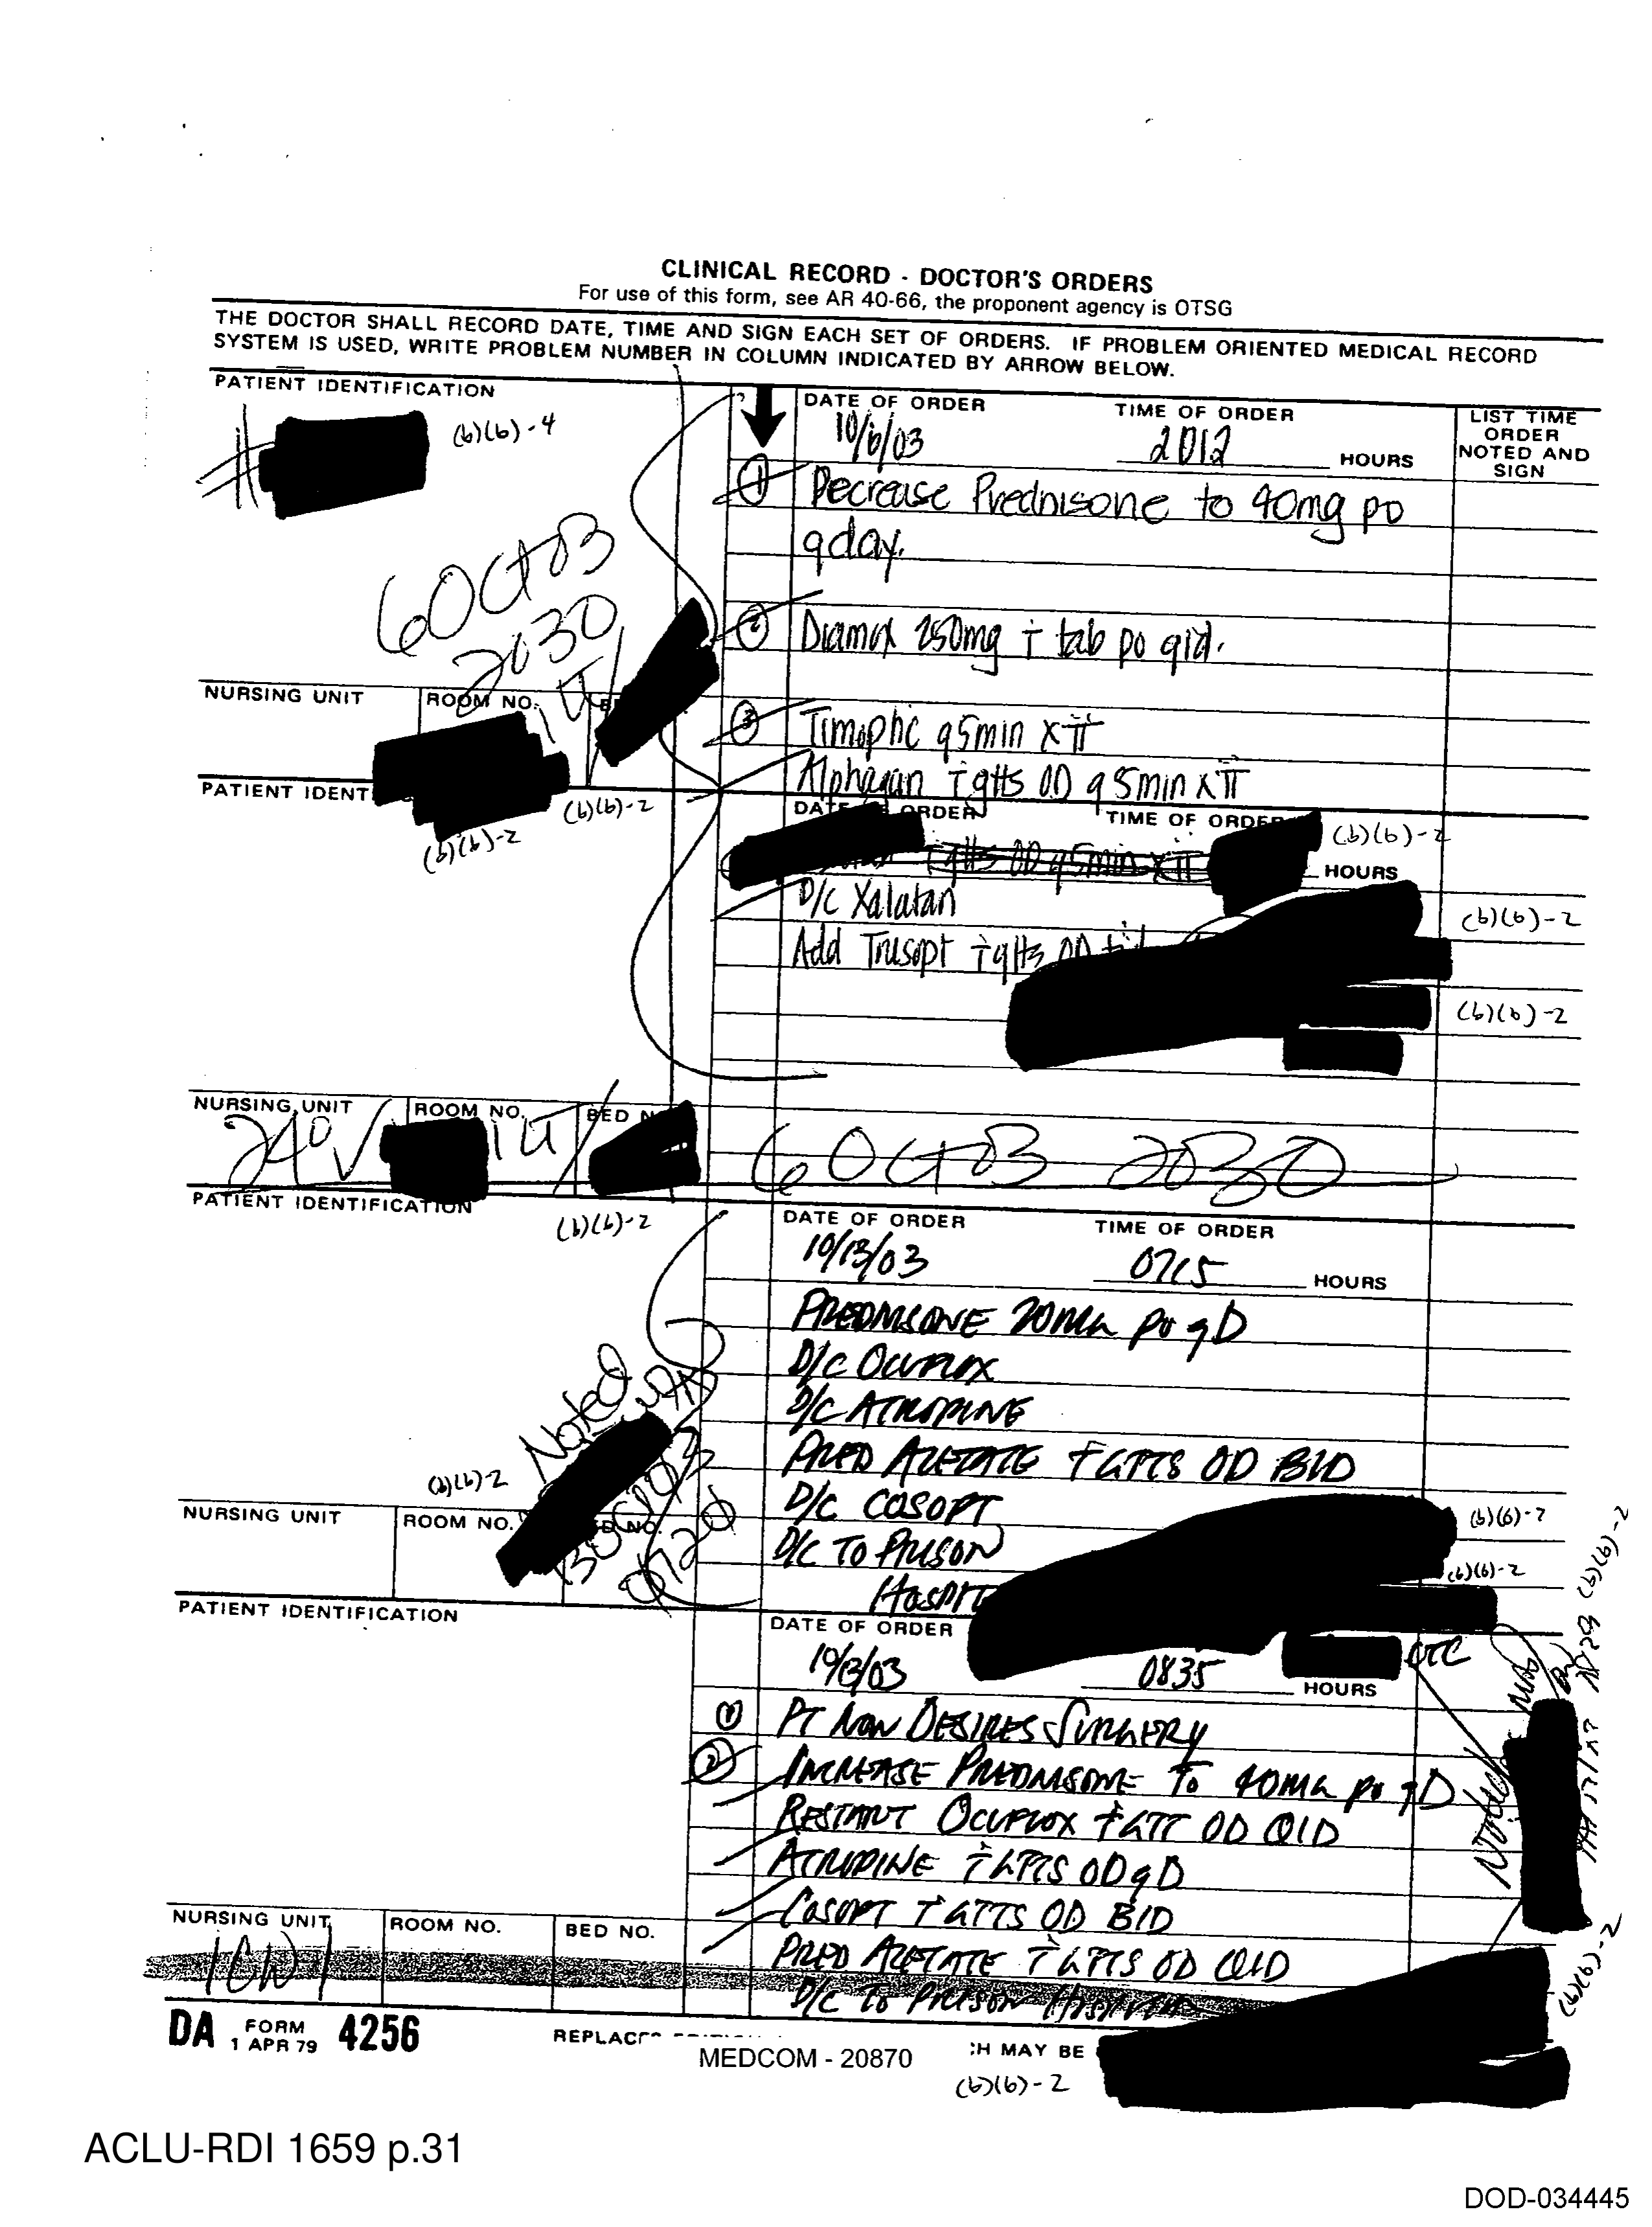 CLINICAL RECORD - DOCTOR'S ORDERS
For use of this form, see AR 40-66, the proponent agency is OTSG
THE DOCTOR SHALL RECORD DATE, TIME AND SIGN EACH SET OF ORDERS. IF PROBLEM ORIENTED MEDICAL RECORD
SYSTEM IS USED, WRITE PROBLEM NUMBER IN COLUMN INDICATED BY ARROW BELOW.
PATIENT IDENTIFICATION
# (b)(6)-4
DATE OF ORDER TIME OF ORDER
10/6/03 2012 HOURS
LIST TIME
ORDER
NOTED AND
SIGN
① Decrease Prednisone to 40mg po
qday.
6 Oct 03
2030
② Diamox 250mg i tab po qid.
NURSING UNIT ROOM NO.
③ Timoptic q5min x ii
Alphagan i gtts OD q 5min x ii
PATIENT IDENT
(b)(6)-2
(b)(6)-2
DATE OF ORDER TIME OF ORDER
(b)(6)-2
i gtts OD q5min x ii
HOURS
D/C Xalatan
(b)(6)-2
Add Trusopt i gtts OD
(b)(6)-2
NURSING UNIT ROOM NO. BED
6 Oct 03 2030
PATIENT IDENTIFICATION
(b)(6)-2
DATE OF ORDER TIME OF ORDER
10/13/03 0715 HOURS
PREDNISONE 20MG po qD
D/C OCUFLOX
D/C ATROPINE
PRED ACETATE i GTTS OD BID
D/C COSOPT
D/C TO PRISON
HOSPIT
Noted
(b)(6)-2
13 Oct 03
0720
(b)(6)-2
(b)(6)-2
NURSING UNIT ROOM NO. BED NO.
PATIENT IDENTIFICATION
DATE OF ORDER
10/13/03 0835 HOURS
① PT NOW DESIRES SURGERY
② INCREASE PREDNISONE TO 40MG po qD
RESTART OCUFLOX i GTT OD QID
ATROPINE i GTTS OD qD
COSOPT i GTTS OD BID
PRED ACETATE i GTTS OD QID
D/C TO PRISON HOSPITAL
Noted
(b)(6)-2
(b)(6)-2
NURSING UNIT ROOM NO. BED NO.
ICW 1
DA FORM 4256
1 APR 79
REPLACES
MEDCOM - 20870
CH MAY BE
(b)(6)-2
ACLU-RDI 1659 p.31
DOD-034445